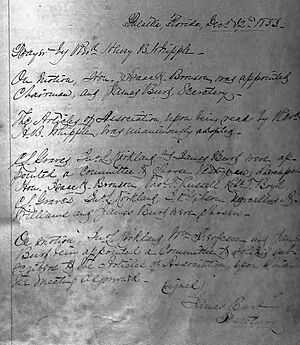 Palatka, Florida, Dec. 12th 1853.
Prayer by Rev. Henry B. Whipple.
On motion, Hon. Isaac H. Bronson was appointed
Chairman, and James Burt Secretary.
The Articles of Association, upon being read by Rev.
H.B. Whipple, was unanimously adopted.
C.J. Graves, Kirkland and James Burt were ap-
pointed a Committee to choose
Hon. Isaac H. Bronson, Russell, Boyd
C.J. Graves, Kirkland, Marcellus A.
Williams and James Burt were chosen.
On motion Kirkland, and James
Burt being appointed a Committee to
to the Articles of Association, upon
the meeting adjourned.
Signed,
James Burt
Secretary